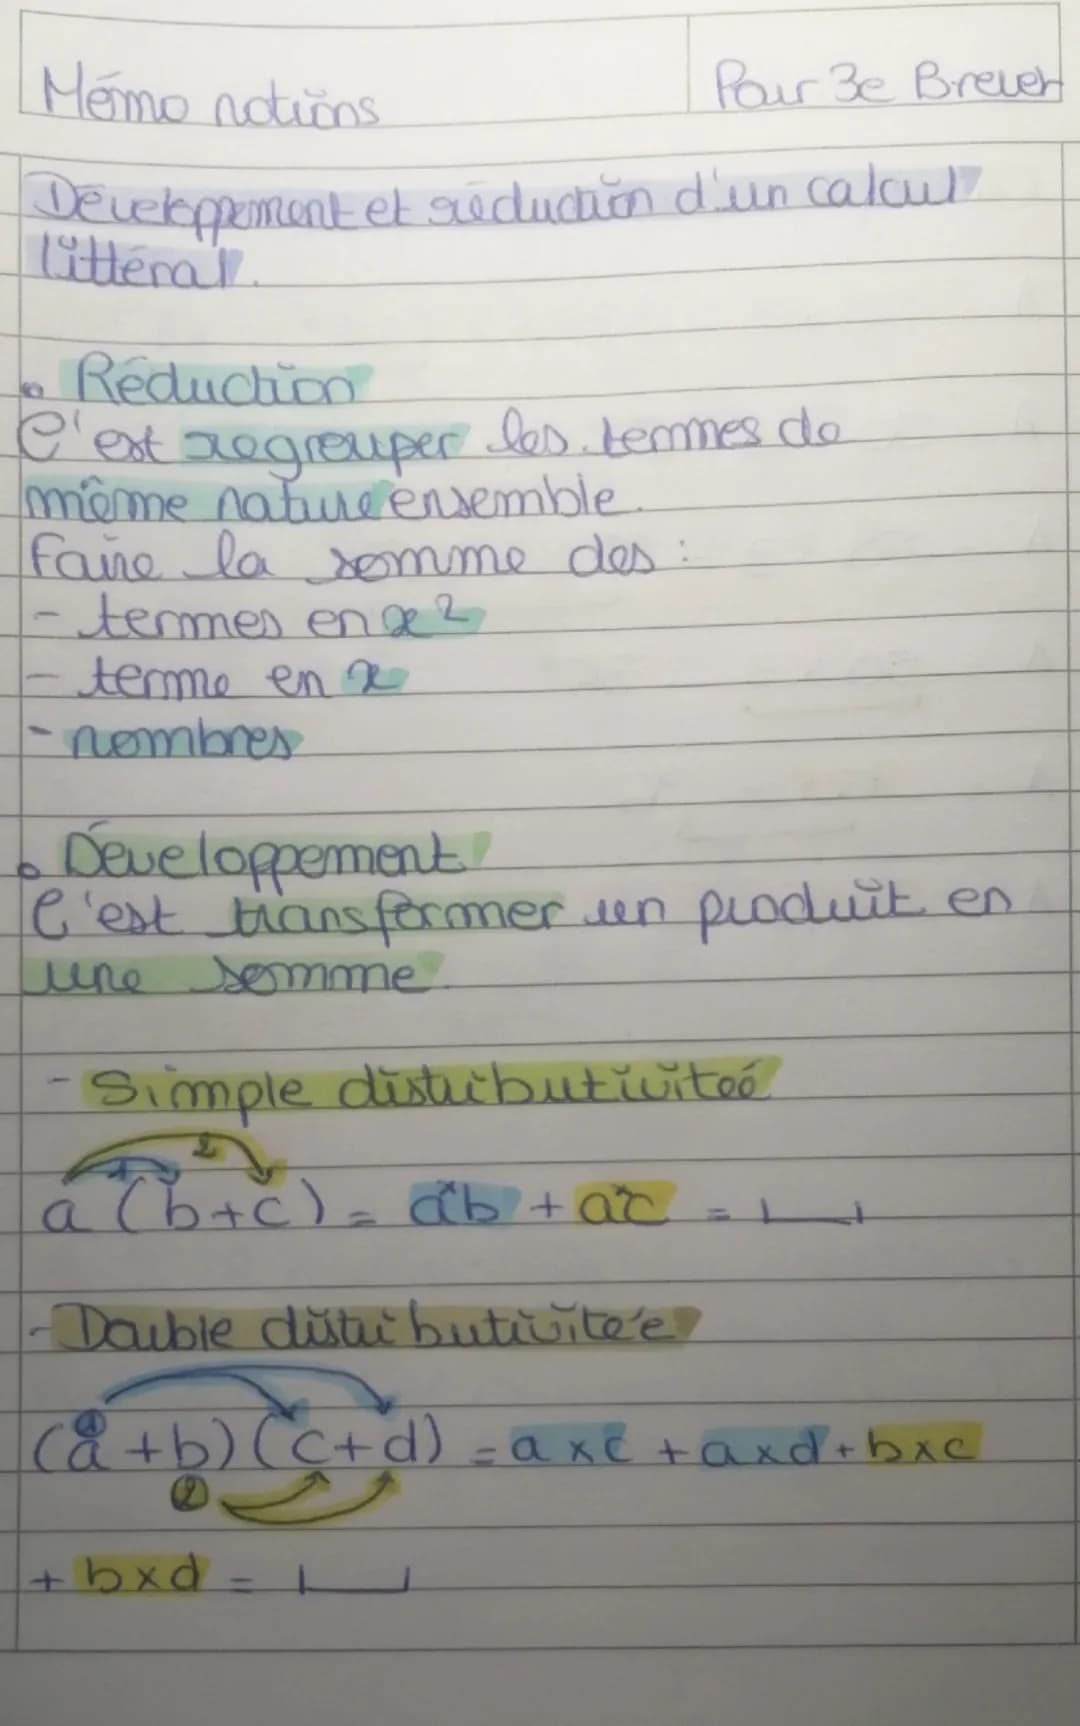 Mémo notions
Pour 3e Brevet
Développement et réduction d'un calcul
littéral.
• Réduction
C'est regrouper les termes de
même nature ensemble.
Faire la somme des :
- termes en x²
- terme en x
- nombres
• Développement
C'est transformer un produit en
une somme.
- Simple distributivité
1 2
a (b+c) = a×b + a×c = |_|
- Double distributivitée
1
(a+b)(c+d) = a×c + a×d + b×c
2
+ b×d = |_|